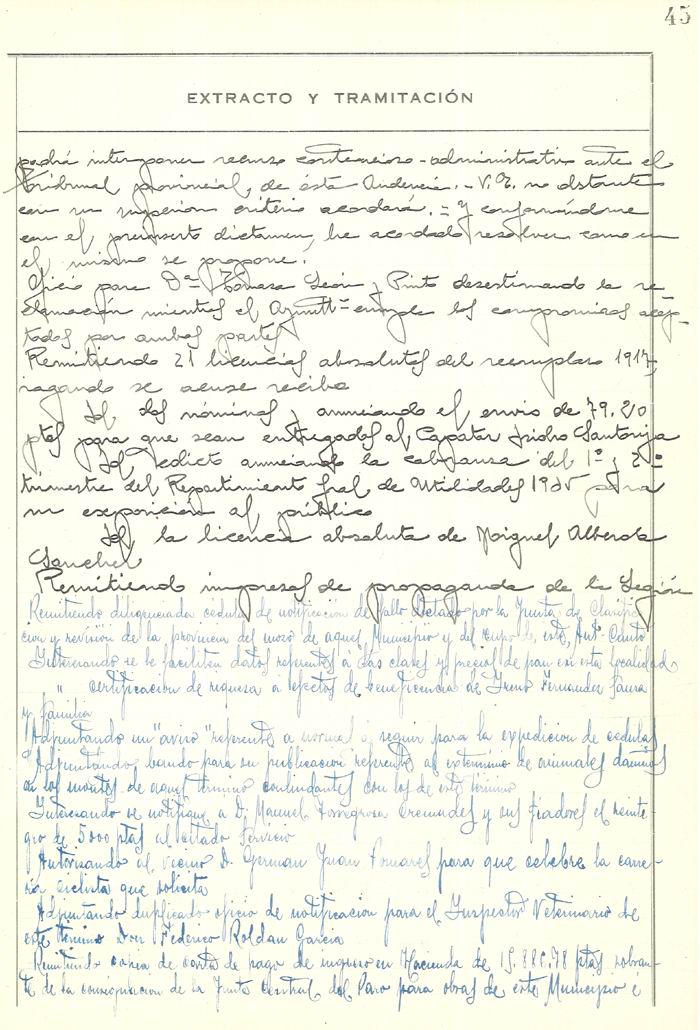 45
EXTRACTO Y TRAMITACIÓN
podrá interponer recurso contencioso-administrativo ante el
Tribunal provincial, de ésta Audencia. - V.E. no obstante
con su superior criterio acordará. = Y conformándome
con el preinserto dictamen, he acordado resolver como en
el mismo se propone.
Oficio para Dª Tomasa León y Pinto desestimando la re-
clamación mientras el Ayunttº cumpla los compromisos acep-
tados por ambas partes
Remitiendo 21 licencias absolutas del reemplazo 1917,
rogando se acuse recibo
Id. las nóminas y anunciando el envio de 79,20
ptas para que sean entregadas al Capataz Isidro Santonja
Id. edicto anunciando la cobranza del 1º y 2º
trimestre del Repartimiento gral de Utilidades 1935 para
su exposición al público
Id. la licencia absoluta de Miguel Alberola
Sanchez
Remitiendo impresos de propaganda de la Legión
Remitiendo diligenciada cedula de notificación de fallo dictado por la Junta de Clasifi-
cion y revisión de la provincia del mozo de aquel Municipio y del cupo de este, Antº Canto
Interesando se le faciliten datos referentes á las clases y precios de pan en esta localidad
" certificación de riqueza a efectos de beneficencia de Irene Fernandez Saura
y familia
Adjuntando un "aviso" referente a normas a seguir para la expedicion de cedulas
Adjuntando bando para su publicación referente al exterminio de animales dañinos
en los montes de aquel término colindantes con los de este término
Interesando se notifique a D. Manuel Torregrosa Cremades y sus fiadores el reinte-
gro de 5000 ptas al citado Servicio
Autorizando al vecino D. German Juan Pomares para que celebre la carre-
ra ciclista que solicita
Adjuntando duplicado oficio de notificación para el Inspector Veterinario de
este término Don Federico Roldan Garcia
Remitiendo copia de carta de pago de ingreso en Hacienda de ptas sobran-
te de la consignacion de la Junta Central del Paro para obras de este Municipio e